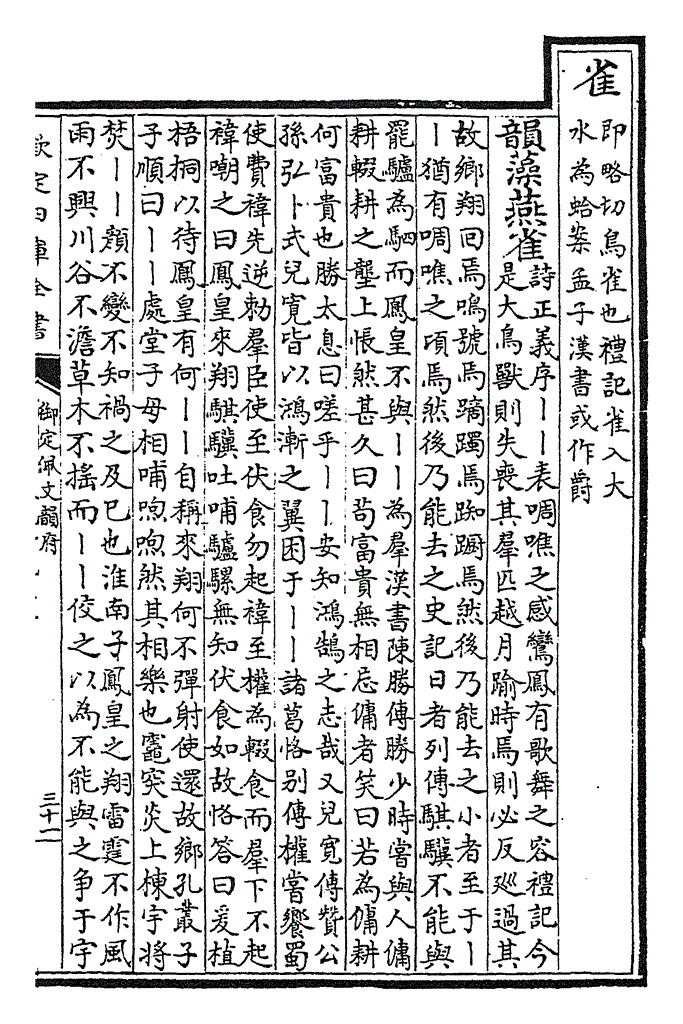 雀
即略切鳥雀也禮記雀入大
水為蛤案孟子漢書或作爵
韻藻燕雀
詩正義序丨丨表啁噍之感鸞鳳有歌舞之容禮記今
是大鳥獸則失喪其羣匹越月踰時焉則必反廵過其
故鄉翔回焉鳴號焉蹢躅焉踟蹰焉然後乃能去之小者至于丨
丨猶有啁噍之頃焉然後乃能去之史記日者列傳騏驥不能與
罷驢為駟而鳳皇不與丨丨為羣漢書陳勝傳勝少時嘗與人傭
耕輟耕之壟上悵然甚久曰茍富貴無相忘傭者笑曰若為傭耕
何富貴也勝太息曰嗟乎丨丨安知鴻鵠之志哉又兒寛傳贊公
孫弘卜式兒寛皆以鴻漸之翼困于丨丨諸葛恪别傳權嘗饗蜀
使費禕先逆勅羣臣使至伏食勿起禕至權為輟食而羣下不起
禕嘲之曰鳳皇來翔騏驥吐哺驢騾無知伏食如故恪答曰爰植
梧桐以待鳳皇有何丨丨自稱來翔何不彈射使還故鄉孔叢子
子順曰丨丨處堂子母相哺呴呴然其相樂也竈突炎上棟宇將
焚丨丨顔不變不知禍之及已也淮南子鳳皇之翔雷霆不作風
雨不興川谷不澹草木不揺而丨丨佼之以為不能與之争于宇
欽定四庫全書
御定佩文韻府
三十一